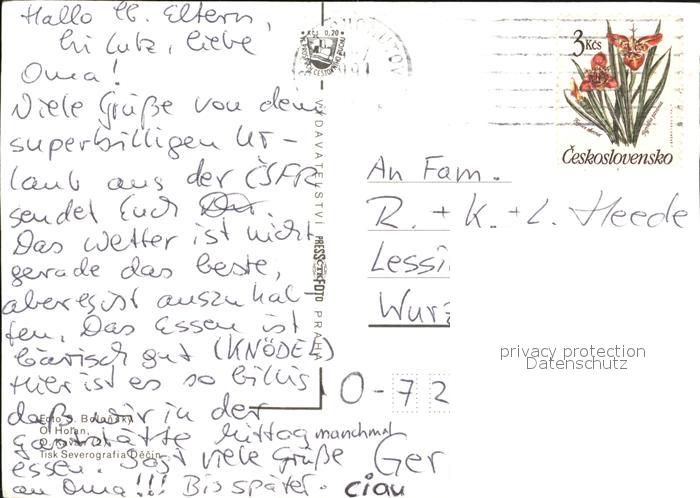 Hallo lb. Eltern,
hi Lutz, liebe
Oma!
Viele Grüße von dem
superbilligen Ur-
laub aus der ČSFR
sendet Euch
Das Wetter ist nicht
gerade das beste,
aber es ist auszuhal-
ten. Das Essen ist
bärisch gut (KNÖDEL)
Hier ist es so billig
daß wir in der
Gaststätte Mittag manchmal
essen. Sagt viele Grüße
an Oma!!! Bis später. ciau
Kčs 0,20
VYDAVATELSTVÍ PRESSFOTO PRAHA
Foto S. Boloňský
O. Horan,
Tisk Severografia Děčín
3 Kčs
Československo
An Fam.
R. + K. + L. Heede
Lessi
Wurz
O-72
Ger
privacy protection
Datenschutz